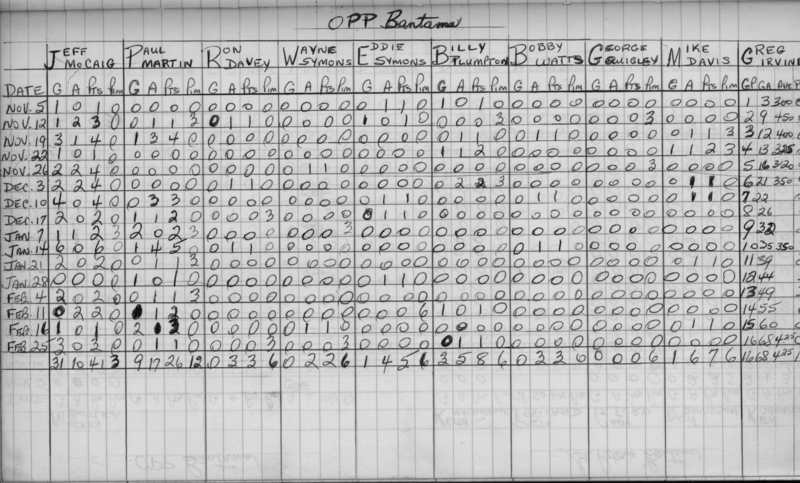 OPP Bantams
JEFF McCAIG PAUL MARTIN RON DAVEY WAYNE SYMONS EDDIE SYMONS BILLY PLUMPTON BOBBY WATTS GEORGE QUIGLEY MIKE DAVIS GREG IRVINE
DATE G A Pts Pim G A Pts Pim G A Pts Pim G A Pts Pim G A Pts Pim G A Pts Pim G A Pts Pim G A Pts Pim G A Pts Pim GP GA AVE
NOV. 5 1 0 1 0 0 0 0 0 0 0 0 0 0 0 0 0 0 1 1 0 1 0 1 0 0 0 0 0 0 0 0 0 0 0 0 0 1 3 300
NOV. 12 1 2 3 0 0 1 1 3 0 1 1 0 0 0 0 0 1 0 1 0 0 0 0 3 0 0 0 0 0 0 0 3 0 0 0 0 2 9 450
NOV. 19 3 1 4 0 1 3 4 0 0 0 0 0 0 0 0 0 0 0 0 0 0 1 1 0 0 1 1 0 0 0 0 0 0 1 1 3 3 12 400
NOV. 22 1 0 1 0 0 0 0 0 0 0 0 0 0 0 0 0 0 0 0 0 1 1 2 0 0 0 0 0 0 0 0 0 1 1 2 3 4 13 325
NOV. 26 2 2 4 0 0 0 0 0 0 0 0 0 0 1 1 0 0 0 0 0 0 0 0 0 0 0 0 0 0 0 0 3 0 0 0 0 5 16 320
DEC. 3 2 2 4 0 0 0 0 0 0 1 1 0 0 0 0 0 0 0 0 0 0 2 2 3 0 0 0 0 0 0 0 0 0 1 1 0 6 21 350
DEC. 10 4 0 4 0 0 3 3 0 0 0 0 0 0 0 0 0 0 1 1 0 0 0 0 0 0 1 1 0 0 0 0 0 0 1 1 0 7 22
DEC. 17 2 0 2 0 1 1 2 0 0 0 0 3 0 0 0 0 0 1 1 0 0 0 0 0 0 0 0 0 0 0 0 0 0 0 0 0 8 26
JAN. 7 1 1 2 3 2 0 2 3 0 0 0 0 0 0 0 3 0 0 0 0 0 0 0 0 0 0 0 0 0 0 0 0 0 0 0 0 9 32
JAN. 14 6 0 6 0 1 4 5 0 0 1 1 0 0 0 0 0 0 0 0 0 0 0 0 0 0 1 1 0 0 0 0 0 0 0 0 0 10 35 350
JAN. 21 2 0 2 0 0 1 1 3 0 0 0 0 0 0 0 0 0 0 0 0 0 0 0 0 0 0 0 0 0 0 0 0 0 1 1 0 11 39
JAN. 28 0 0 0 0 1 0 1 0 0 0 0 0 0 0 0 0 0 1 1 0 0 0 0 0 0 0 0 0 0 0 0 0 0 0 0 0 12 44
FEB. 4 2 0 2 0 0 1 1 3 0 0 0 0 0 0 0 0 0 0 0 0 0 0 0 0 0 0 0 0 0 0 0 0 0 0 0 0 13 49
FEB. 11 0 2 2 0 1 2 0 0 0 0 0 0 0 0 0 0 0 0 6 1 0 1 0 0 0 0 0 0 0 0 0 0 0 0 0 14 55
FEB. 16 1 0 1 0 2 0 0 0 0 0 0 1 1 0 0 0 0 0 0 0 0 0 0 0 0 0 0 0 0 0 0 1 1 0 15 60
FEB. 25 3 0 3 0 0 1 1 0 0 0 0 3 0 0 0 3 0 0 0 0 0 1 1 0 0 0 0 0 0 0 0 0 0 0 0 0 16 68 425
31 10 41 3 9 17 26 12 0 3 3 6 0 2 2 6 1 4 5 6 3 5 8 6 0 3 3 0 0 0 0 6 1 6 7 6 16 68 425